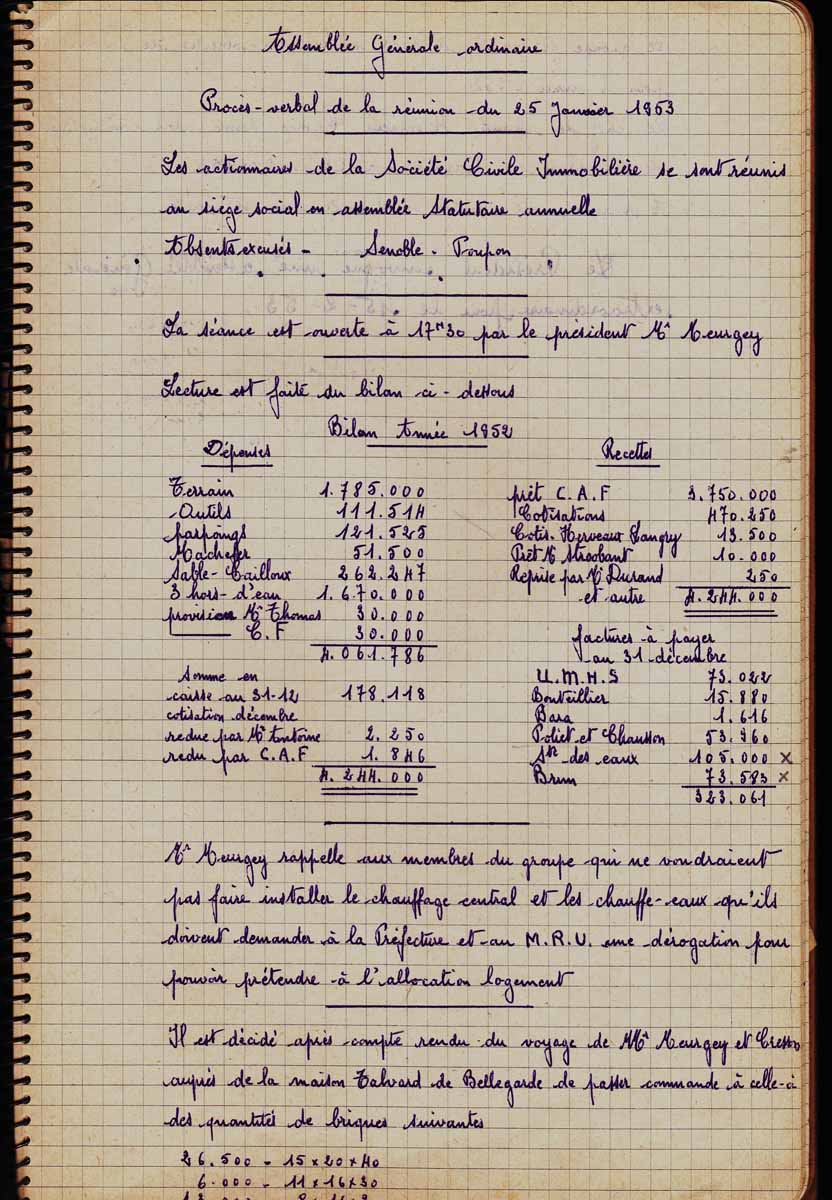 Assemblée Générale ordinaire
Procès-verbal de la réunion du 25 Janvier 1953
Les actionnaires de la Société Civile Immobilière se sont réunis
au siége social en assemblée Statutaire annuelle
Absents excusés - Senoble - Poupon
La séance est ouverte à 17H30 par le président Mr Meurgey
Lecture est faite du bilan ci-dessous
Bilan Année 1952
Dépenses
Terrain 1.785.000
Outils 111.514
parpaings 121.525
Machefer 51.500
Sable-Cailloux 262.247
3 hors-d'eau 1.670.000
provision Mr Thomas 30.000
C.F 30.000
4.061.786
Somme en
caisse au 31-12 178.118
cotisation décembre
redue par Mr Antoine 2.250
redu par C.A.F 1.846
4.244.000
Recettes
prêt C.A.F 3.750.000
Cotisations 470.250
Cotis. Herveaux Langry 13.500
Prêt Mr Stroobant 10.000
Reprise par Mr Durand 250
et autre 4.244.000
factures à payer
au 31 décembre
U.M.H.S 73.022
Bouteillier 15.880
Bara 1.616
Poliet et Chausson 53.960
Sté des eaux 105.000 x
Brun 73.583 x
323.061
Mr Meurgey rappelle aux membres du groupe qui ne voudraient
pas faire installer le chauffage central et les chauffe-eaux qu'ils
doivent demander à la Préfecture et au M.R.U. une dérogation pour
pouvoir prétendre à l'allocation logement
Il est décidé après compte rendu du voyage de MMr Meurgey et Cresson
auprès de la maison Talvard de Bellegarde de passer commande à celle-ci
des quantités de briques suivantes
26.500 - 15x20x40
6.000 - 11x16x30